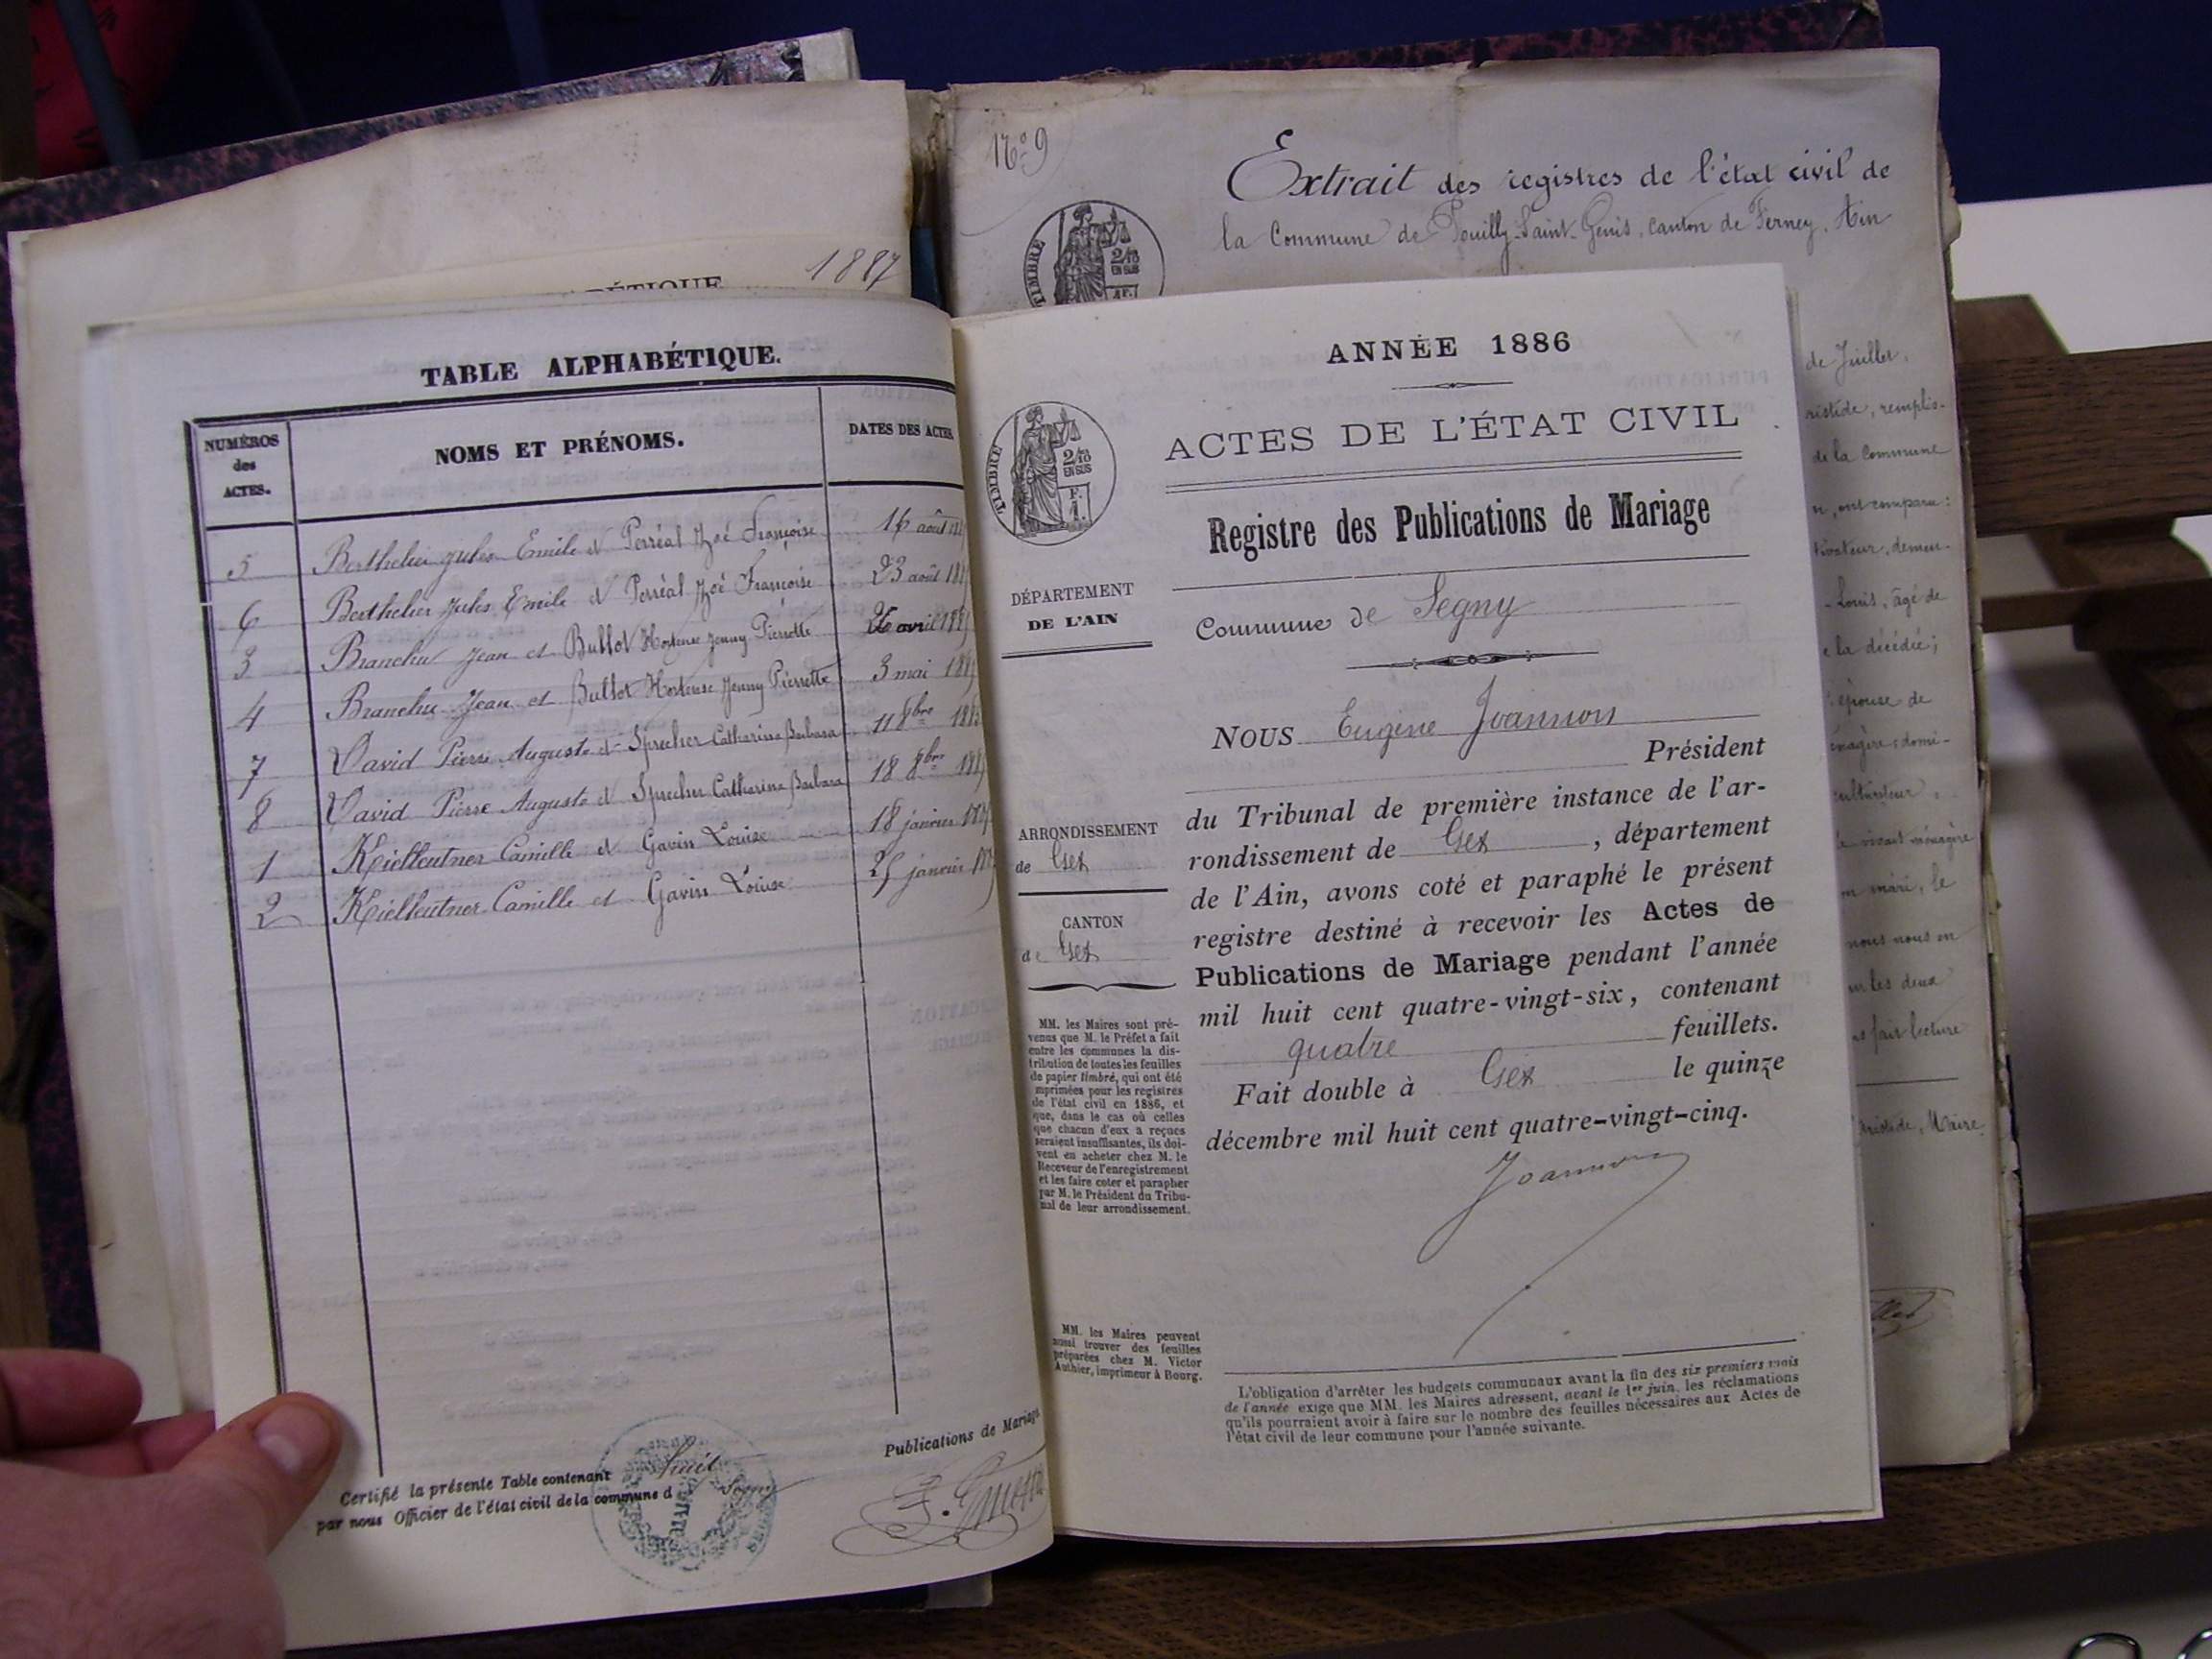 1887
BÉTIQUE
TABLE ALPHABÉTIQUE.
NUMÉROS des ACTES.
NOMS ET PRÉNOMS.
DATES DES ACTES
5 Berthelier Jules Emile et Perréal Zoé Françoise 16 août
6 Berthelier Jules Emile et Perréal Zoé Françoise 23 août
3 Branchu Jean et Bullot Hortense Jenny Pierrette 26 avril
4 Branchu Jean et Bullot Hortense Jenny Pierrette 3 mai
7 David Pierre Auguste et Sprecher Catharina Barbara 11 8bre
8 David Pierre Auguste et Sprecher Catharina Barbara 18 8bre
1 Camille et Gavin Louise 18 janvier
2 Camille et Gavin Louise 25 janvier
Certifié la présente Table contenant huit
Publications de Mariage
par nous Officier de l'état civil de la commune d Segny
No 9
Extrait des registres de l'état civil de
la Commune de Pouilly-Saint-Genis, canton de Ferney, Ain
TIMBRE
2/10
EN SUS
ANNÉE 1886
TIMBRE
2/10
EN SUS
F.
1.
ACTES DE L'ÉTAT CIVIL
Registre des Publications de Mariage
DÉPARTEMENT
DE L'AIN
Commune de Segny
NOUS Eugène Joannon
Président
du Tribunal de première instance de l'ar-
ARRONDISSEMENT
de Gex
rondissement de Gex, département
de l'Ain, avons coté et paraphé le présent
CANTON
de Gex
registre destiné à recevoir les Actes de
Publications de Mariage pendant l'année
mil huit cent quatre-vingt-six, contenant
quatre feuillets.
Fait double à Gex le quinze
décembre mil huit cent quatre-vingt-cinq.
Joannon
MM. les Maires sont pré-
venus que M. le Préfet a fait
entre les communes la dis-
tribution de toutes les feuilles
de papier timbré, qui ont été
mprimées pour les registres
de l'état civil en 1886, et
que, dans le cas où celles
que chacun d'eux a reçues
seraient insuffisantes, ils doi-
vent en acheter chez M. le
Receveur de l'enregistrement
et les faire coter et parapher
par M. le Président du Tribu-
nal de leur arrondissement.
MM. les Maires peuvent
aussi trouver des feuilles
préparées chez M. Victor
Authier, imprimeur à Bourg.
L'obligation d'arrêter les budgets communaux avant la fin des six premiers mois
de l'année exige que MM. les Maires adressent, avant le 1er juin, les réclamations
qu'ils pourraient avoir à faire sur le nombre des feuilles nécessaires aux Actes de
l'état civil de leur commune pour l'année suivante.
de Juillet,
ristide, remplis-
de la Commune
n, ont comparu:
tivateur, demeu-
Louis, âgé de
e la décédée;
épouse de
énagère domi-
cultivateur,
vivant ménagère
on mari, le
nous nous en
um les deux
ns fait lecture
Aristide, Maire